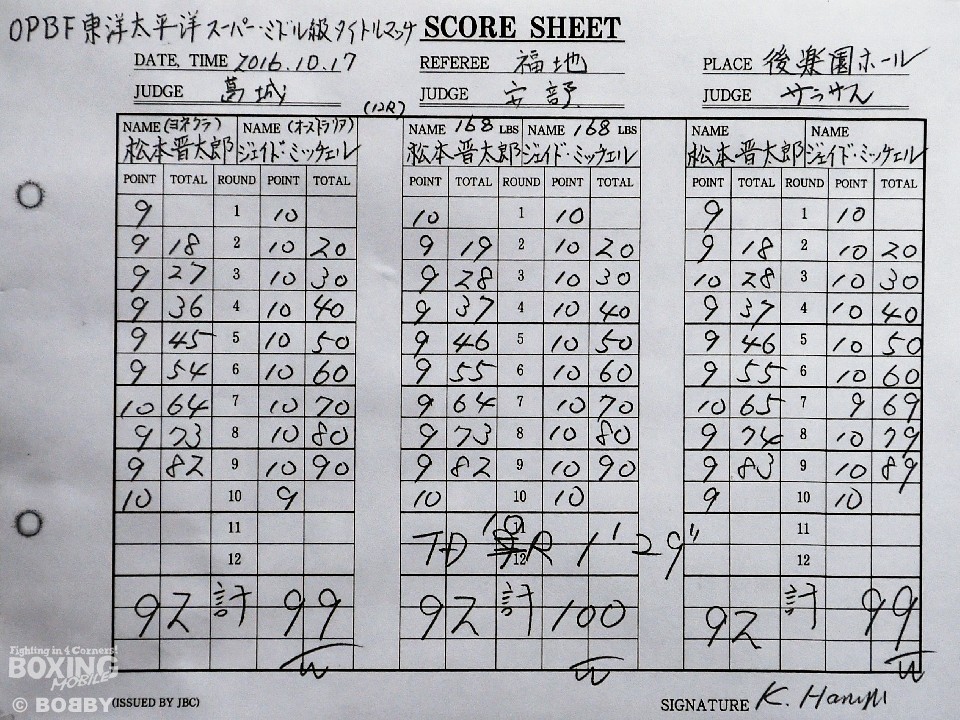 OPBF東洋太平洋スーパー・ミドル級タイトルマッチ SCORE SHEET
DATE, TIME 2016.10.17 REFEREE 福地 PLACE 後楽園ホール
JUDGE 葛城 (12R) JUDGE 安部 JUDGE サラサス
NAME (ヨネクラ) NAME (オーストラリア) NAME 168 LBS NAME 168 LBS NAME NAME
松本晋太郎 ジェイド・ミッチェル 松本晋太郎 ジェイド・ミッチェル 松本晋太郎 ジェイド・ミッチェル
POINT TOTAL ROUND POINT TOTAL POINT TOTAL ROUND POINT TOTAL POINT TOTAL ROUND POINT TOTAL
9 1 10 10 1 10 9 1 10
9 18 2 10 20 9 19 2 10 20 9 18 2 10 20
9 27 3 10 30 9 28 3 10 30 10 28 3 10 30
9 36 4 10 40 9 37 4 10 40 9 37 4 10 40
9 45 5 10 50 9 46 5 10 50 9 46 5 10 50
9 54 6 10 60 9 55 6 10 60 9 55 6 10 60
10 64 7 10 70 9 64 7 10 70 10 65 7 9 69
9 73 8 10 80 9 73 8 10 80 9 74 8 10 79
9 82 9 10 90 9 82 9 10 90 9 83 9 10 89
10 10 9 10 10 10 9 10 10
11 11 11
TD 10 R 1'29"
12 12 12
92 計 99 92 計 100 92 計 99
W W W
Fighting in 4 Corners!
BOXING
MOBILE
© BOBBY
(ISSUED BY JBC) SIGNATURE K.